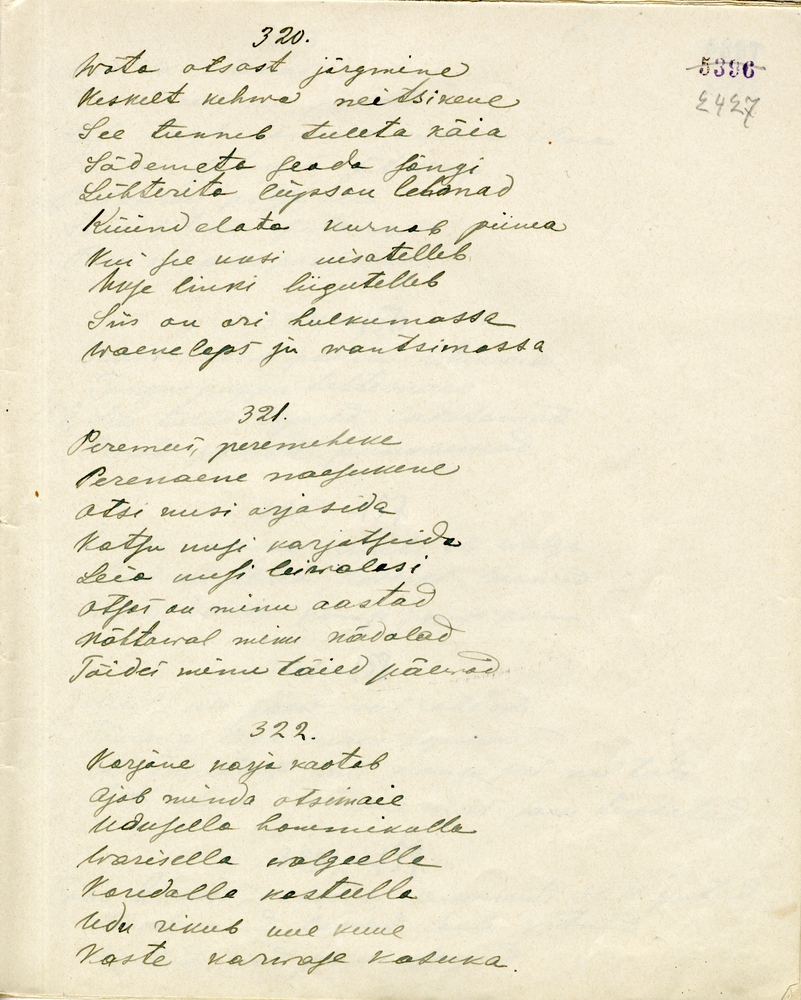 320.
5396
2427
Wõta otsast järgmine
Keskelt kehwa neitsikene
See tunneb tuleta käia
Sädemeta seada sängi
Lühterita lüpsau lehmad
Küündelata kurnab piima
Kui see uusi
Uuje linki liigutelleb
Siis on ori hulkumassa
Waenelaps ju wantsimassa
321.
Peremees, peremeheke
Perenaene naesukene
Otsi uusi orjasida
Katsu uusi karjatseida
Leia uusi leiwalasi
Otsas on minu aastad
Nähtawal minu nädalad
Täides minu täied päewad
322.
Karjane karja kaotab
Ajab minda otsimaie
Udusella hommikulla
Warisella walgeella
Karedalla kasteella
Udu rikub uue kuue
Kaste karwase kasuka.